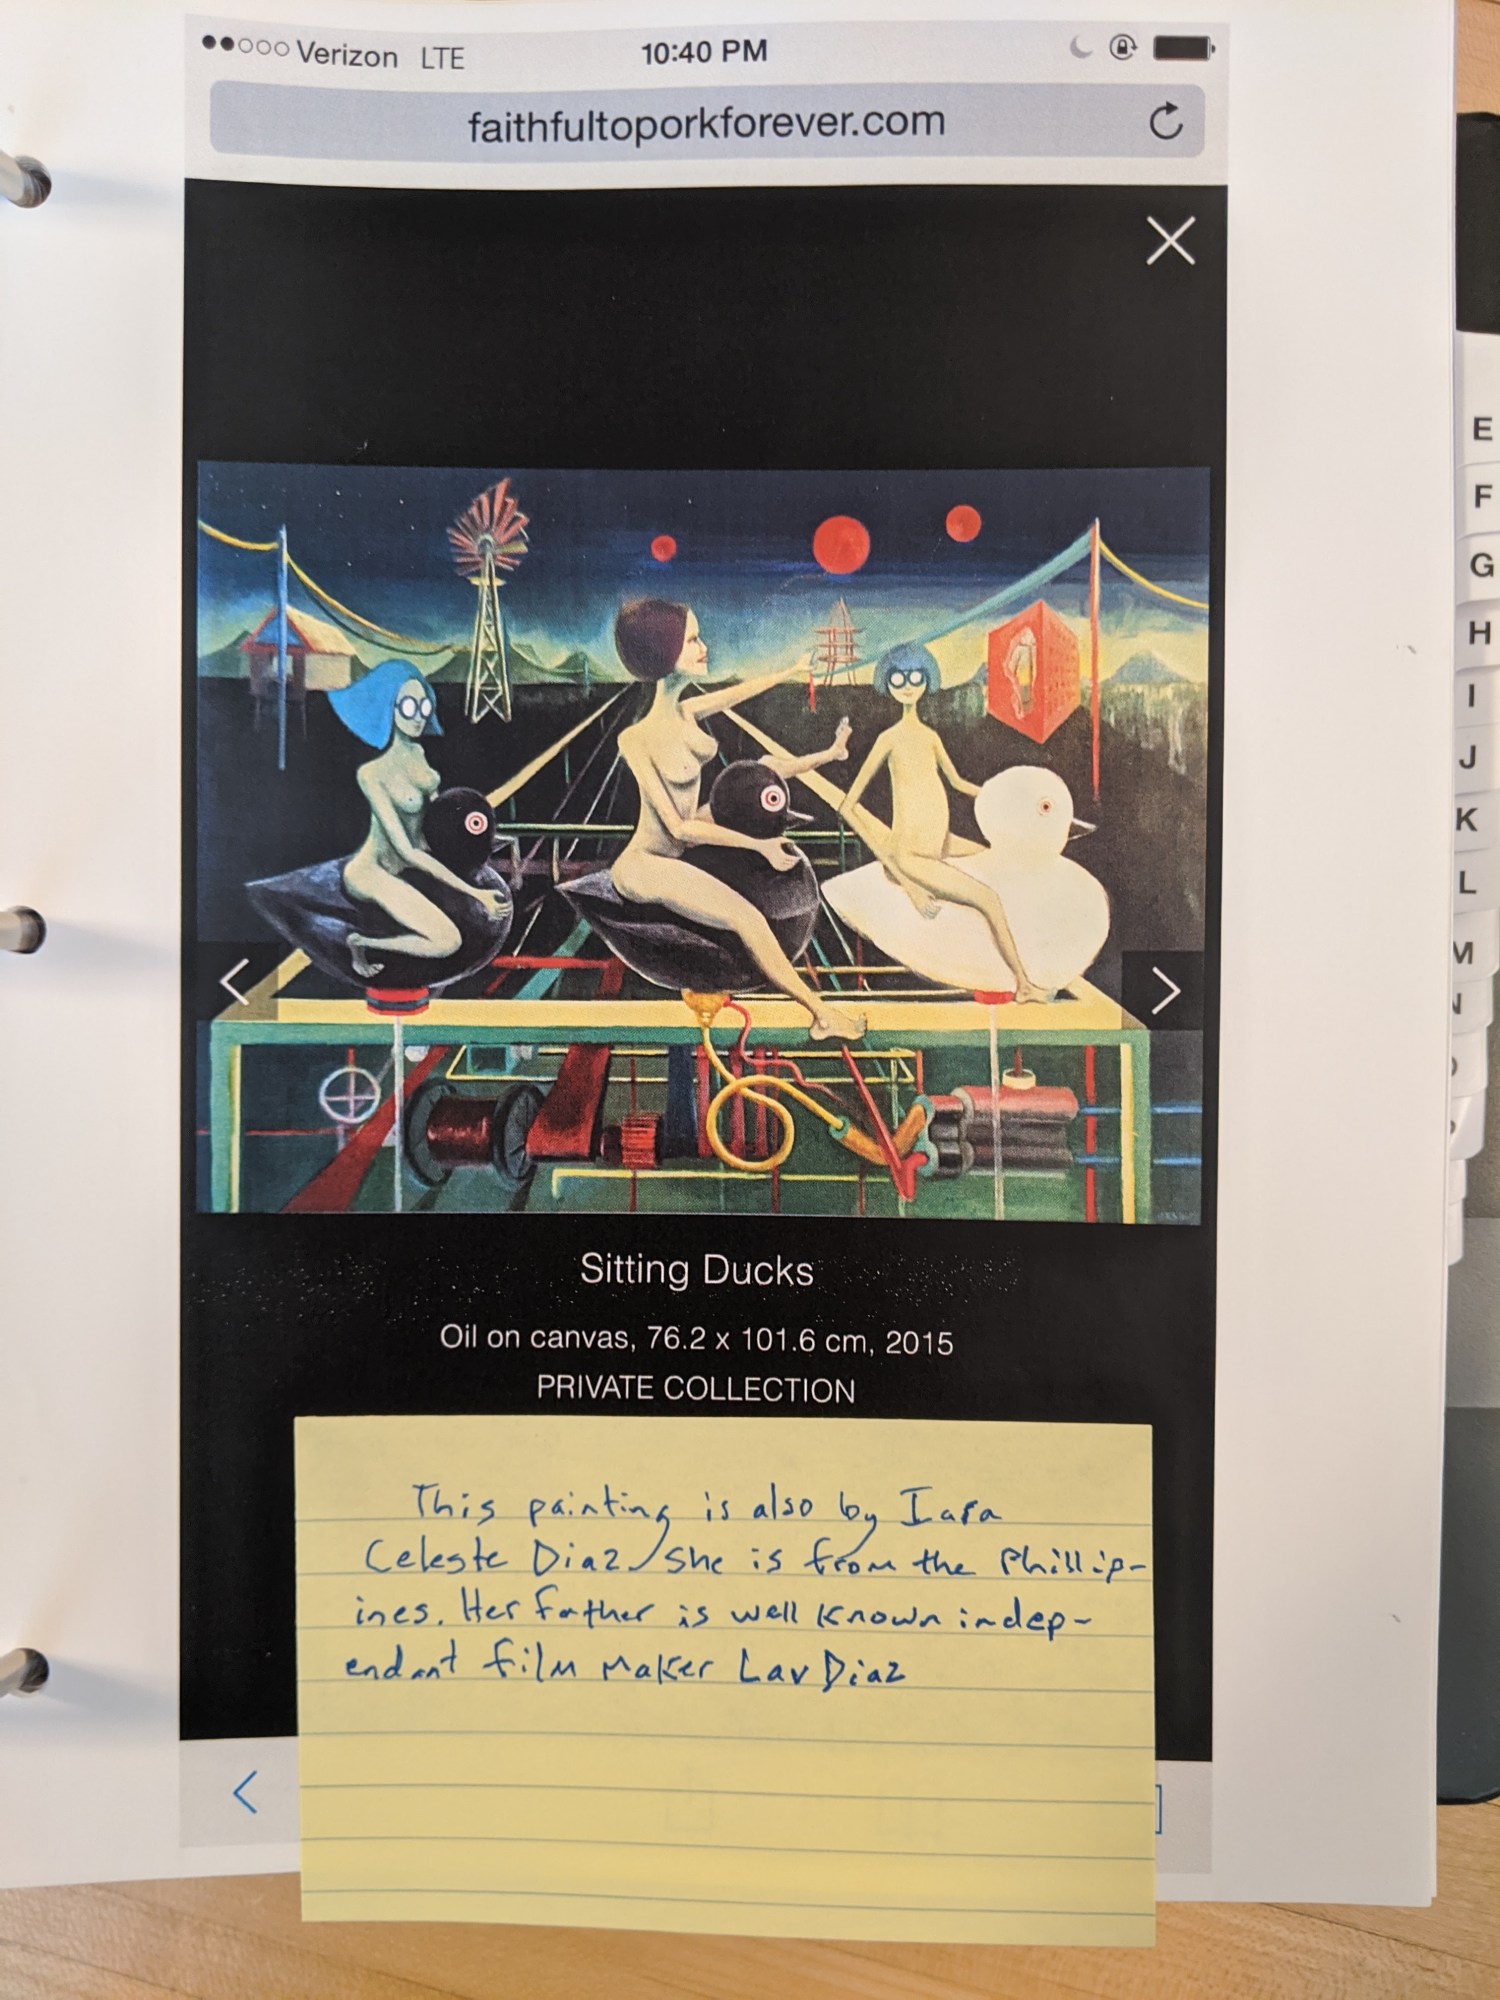 Verizon LTE 10:40 PM
faithfultoporkforever.com
Sitting Ducks
Oil on canvas, 76.2 x 101.6 cm, 2015
PRIVATE COLLECTION
This painting is also by Iara
Celeste Diaz. She is from the Phillip-
ines. Her father is well known indep-
endant film maker Lav Diaz
E
F
G
H
I
J
K
L
M
N